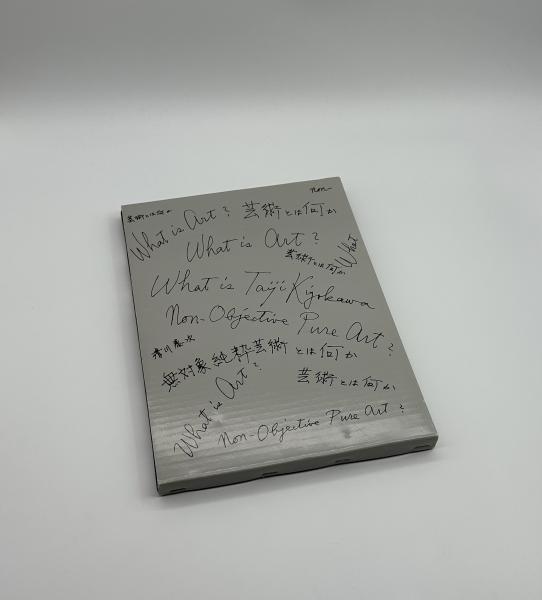 non-
芸術とは何か
What is Art? 芸術とは何か
What is Art?
芸術とは何か
What
What is Taiji Kiyokawa
Non-Objective Pure Art?
清川泰次
無対象純粋芸術とは何か
What is Art?
芸術とは何か
Non-Objective Pure Art?